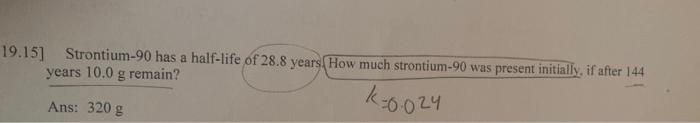 19.15] Strontium-90 has a half-life of 28.8 years. How much strontium-90 was present initially, if after 144
years 10.0 g remain?
Ans: 320 g
k=0.024